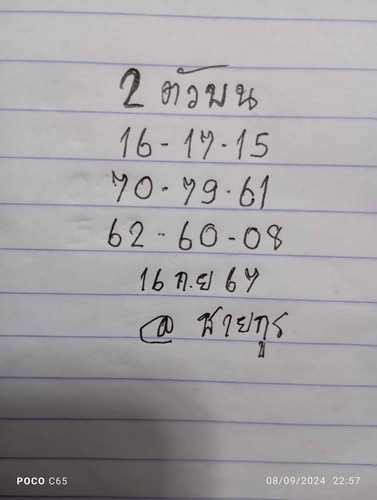 2 ตัวบน
16-17-15
70-79-61
62-60-08
16 ก.ย 67
@ ชายกูร
POCO C65
08/09/2024 22:57